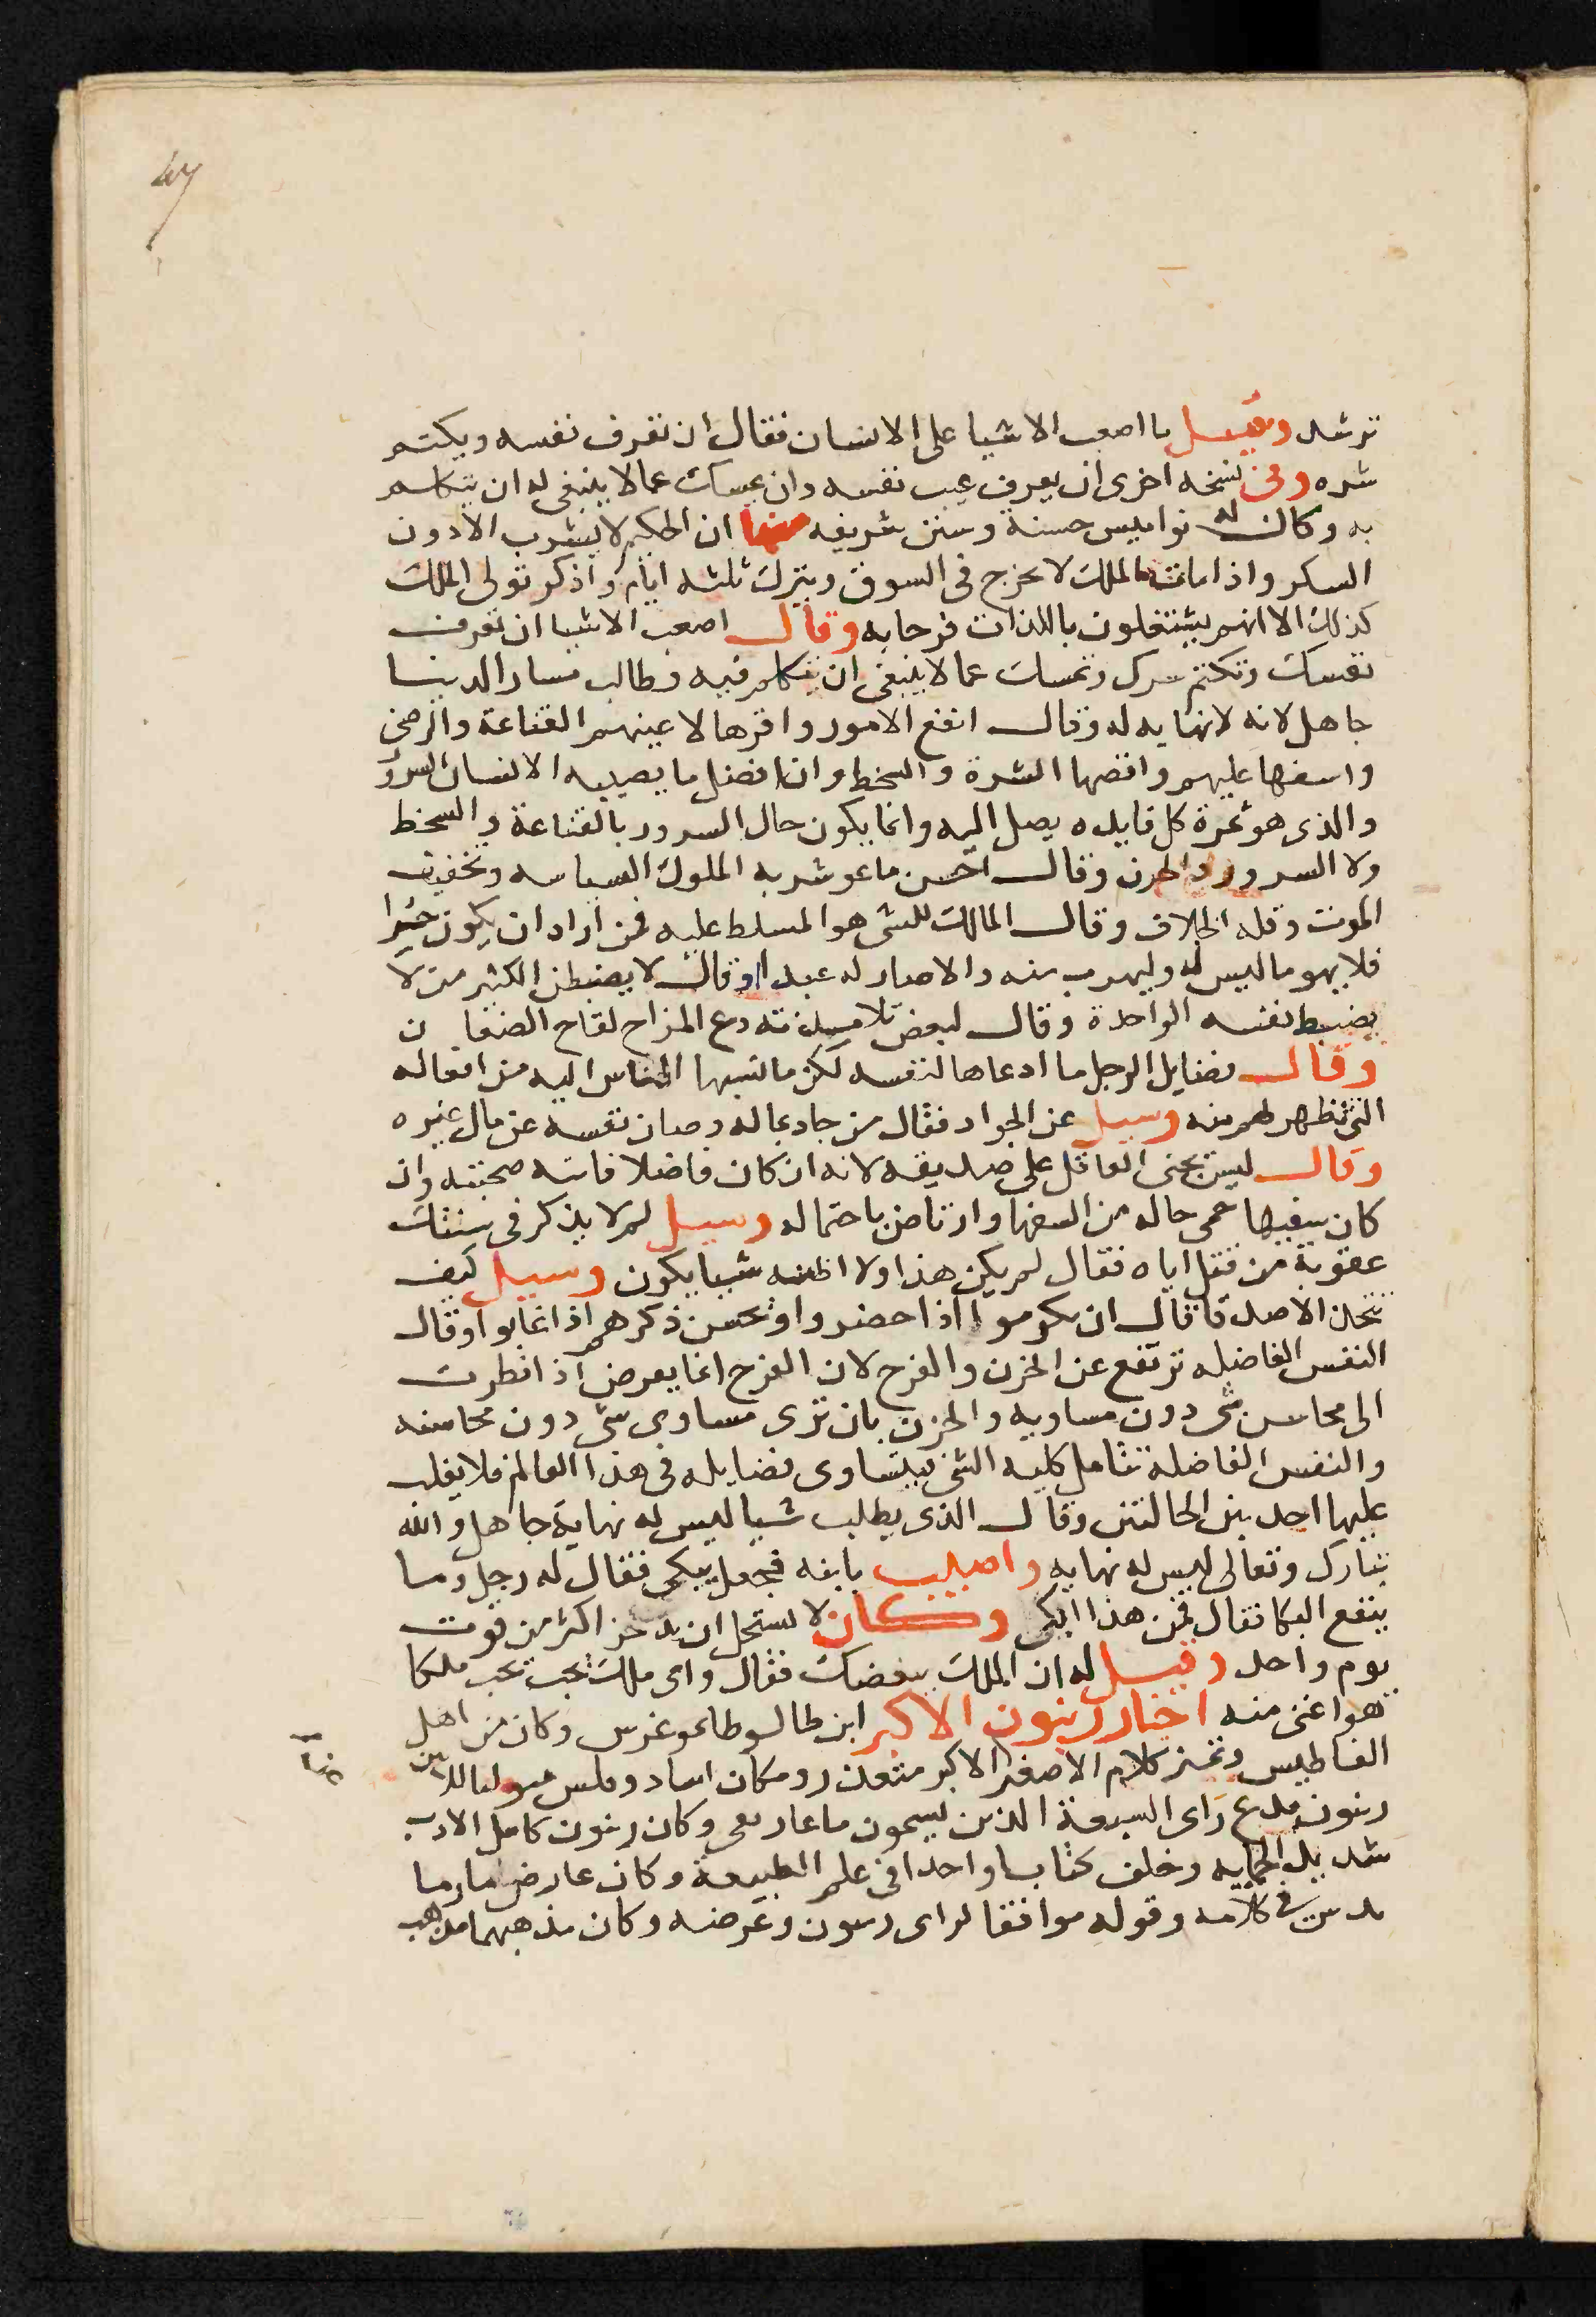 47
ترشد وقيل ما اصعب الاشيا على الانسان فقال ان تعرف نفسه ويكتم
شره وفى نسخه اخرى ان يعرف عيب نفسه وان يمسك عما لا ينبغى له ان يتكلم
به وكان له نواميس حسنة وسنن شريفه منها ان الحكيم لا يشرب الا دون
السكر واذا مات الملك لا يخرج فى السوق ويترك ثلثه ايام واذكر تولى الملك
كذلك الا انهم يشتغلون باللذات فرحا به وقال اصعب الاشيا ان تعرف
نفسك وتكتم سرك وتمسك عما لا ينبغى ان يتكلم فيه وطالب مسار الدنيا
جاهل لانه لا نهايه له وقال انفع الامور واقرها لا عينهم القناعة والرضى
واسفها عليهم واقصها الشرة والسخط وان افضل ما يصيبه الانسان السرور
والذى هو ثمرة كل فايده يصل اليه وانما يكون حال السرور بالقناعة والسخط
ولا السرور والحزن وقال احسن ما عوشر به الملوك السياسه وتخفيف
المونت وقله الخلاف وقال المالك للشى هو المسلط عليه فمن اراد ان يكون خيرا
فلا يهو ما ليس له وليهرب منه والا صار له عبدا وقال لا يضبطن الكثير من لا
يضبط نفسه الواحدة وقال لبعض تلاميذته دع المزاح لقاح الضغاين
وقال فضايل الرجل ما ادعاها لنفسه لكن ما نسبها الناس اليه من افعاله
التى تظهر لهم منه وسيل عن الجواد فقال من جاد بماله وصان نفسه عن مال غيره
وقال ليس يجنى العاقل على صديقه لانه ان كان فاضلا فاته صحبته وان
كان سفيها حمى حاله من السفها وارتاض باحتماله وسيل لم لا يذكر فى سنتك
عقوبة من قتل اباه فقال لم يكن هذا ولا اظنه شيا يكون وسيل كيف
نتخذ الاصدقا فقال ان يكرموا اذا حضروا وتحسن ذكرهم اذا غابوا وقال
النفس الفاضله ترتفع عن الحزن والفرح لان الفرح انما يعرض اذا نظرت
الى محاسن شى دون مساويه والحزن بان ترى مساوى شى دون محاسنه
والنفس الفاضله تتامل كليه الشى يتساوى فضايله فى هذا العالم فلا يغلب
عليها احد بين الحالتين وقال الذى يطلب شيا ليس له نهاية جاهل والله
تبارك وتعالى ليس له نهايه واصيب بابنه فجعل يبكى فقال له رجل وما
ينفع البكا فقال فمن هذا ابكى وكان لا يستحل ان يدخر اكثر من قوت
يوم واحد وقيل له ان الملك يبغضك فقال واى ملك يجب يحب ملكا
هو اغنى منه اخبار زينون الاكبر ابن طالوطاغوغرس وكان من اهل
الفاطيس وتميز كلام الاصغر الاكبر
زينون مدع راى السبعة الذين يسمون وكان زنون كامل الادب
شديد الحمايه وخلف كتابا واحدا فى علم الطبيعة وكان عارض
فى كلامه وقوله موافقا لراى زنون وغرضه وكان مذهبهما مذهب